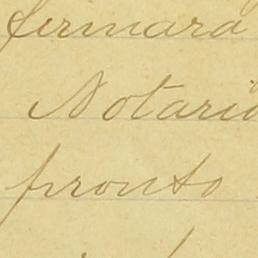 fermará
Notario
pronto